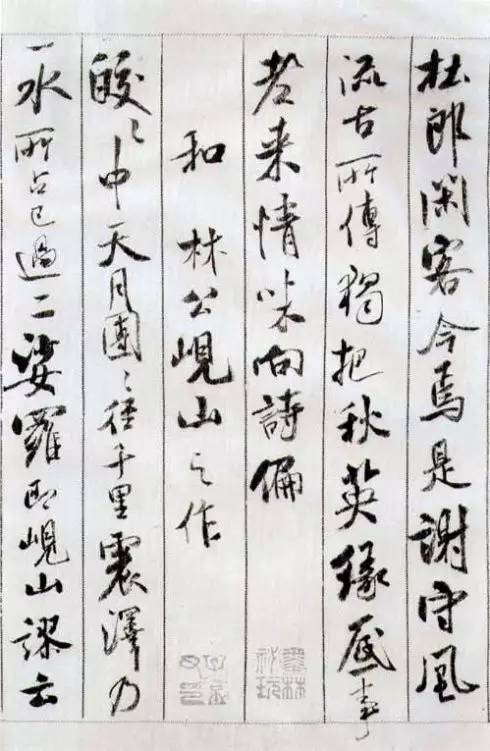 杜郎閑客今焉是謝守風
流古所傳獨把秋英緣底事
老來情味向詩偏
和林公峴山之作
皎々中天月團々徑千里震澤乃
一水所占已過二娑羅即峴山謬云